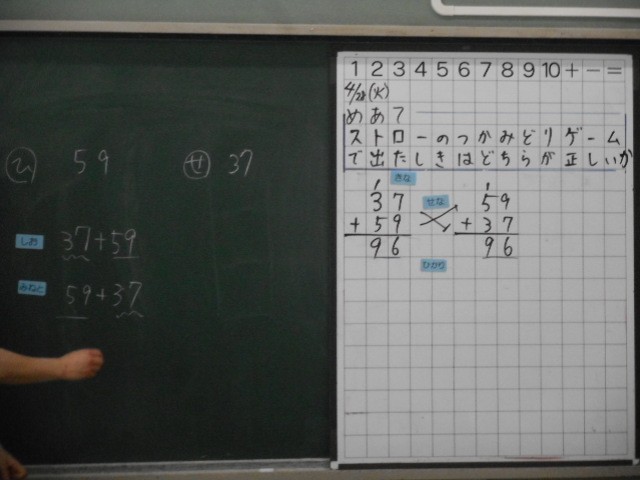 ひ 59 せ 37
しお 37+59
みなと 59+37
1 2 3 4 5 6 7 8 9 10 + - =
4/28(火)
めあて
ストローのつかみどりゲーム
で出たしきはどちらが正しいか
きな
1 1
37 せな 59
+59 +37
96 96
ひかり